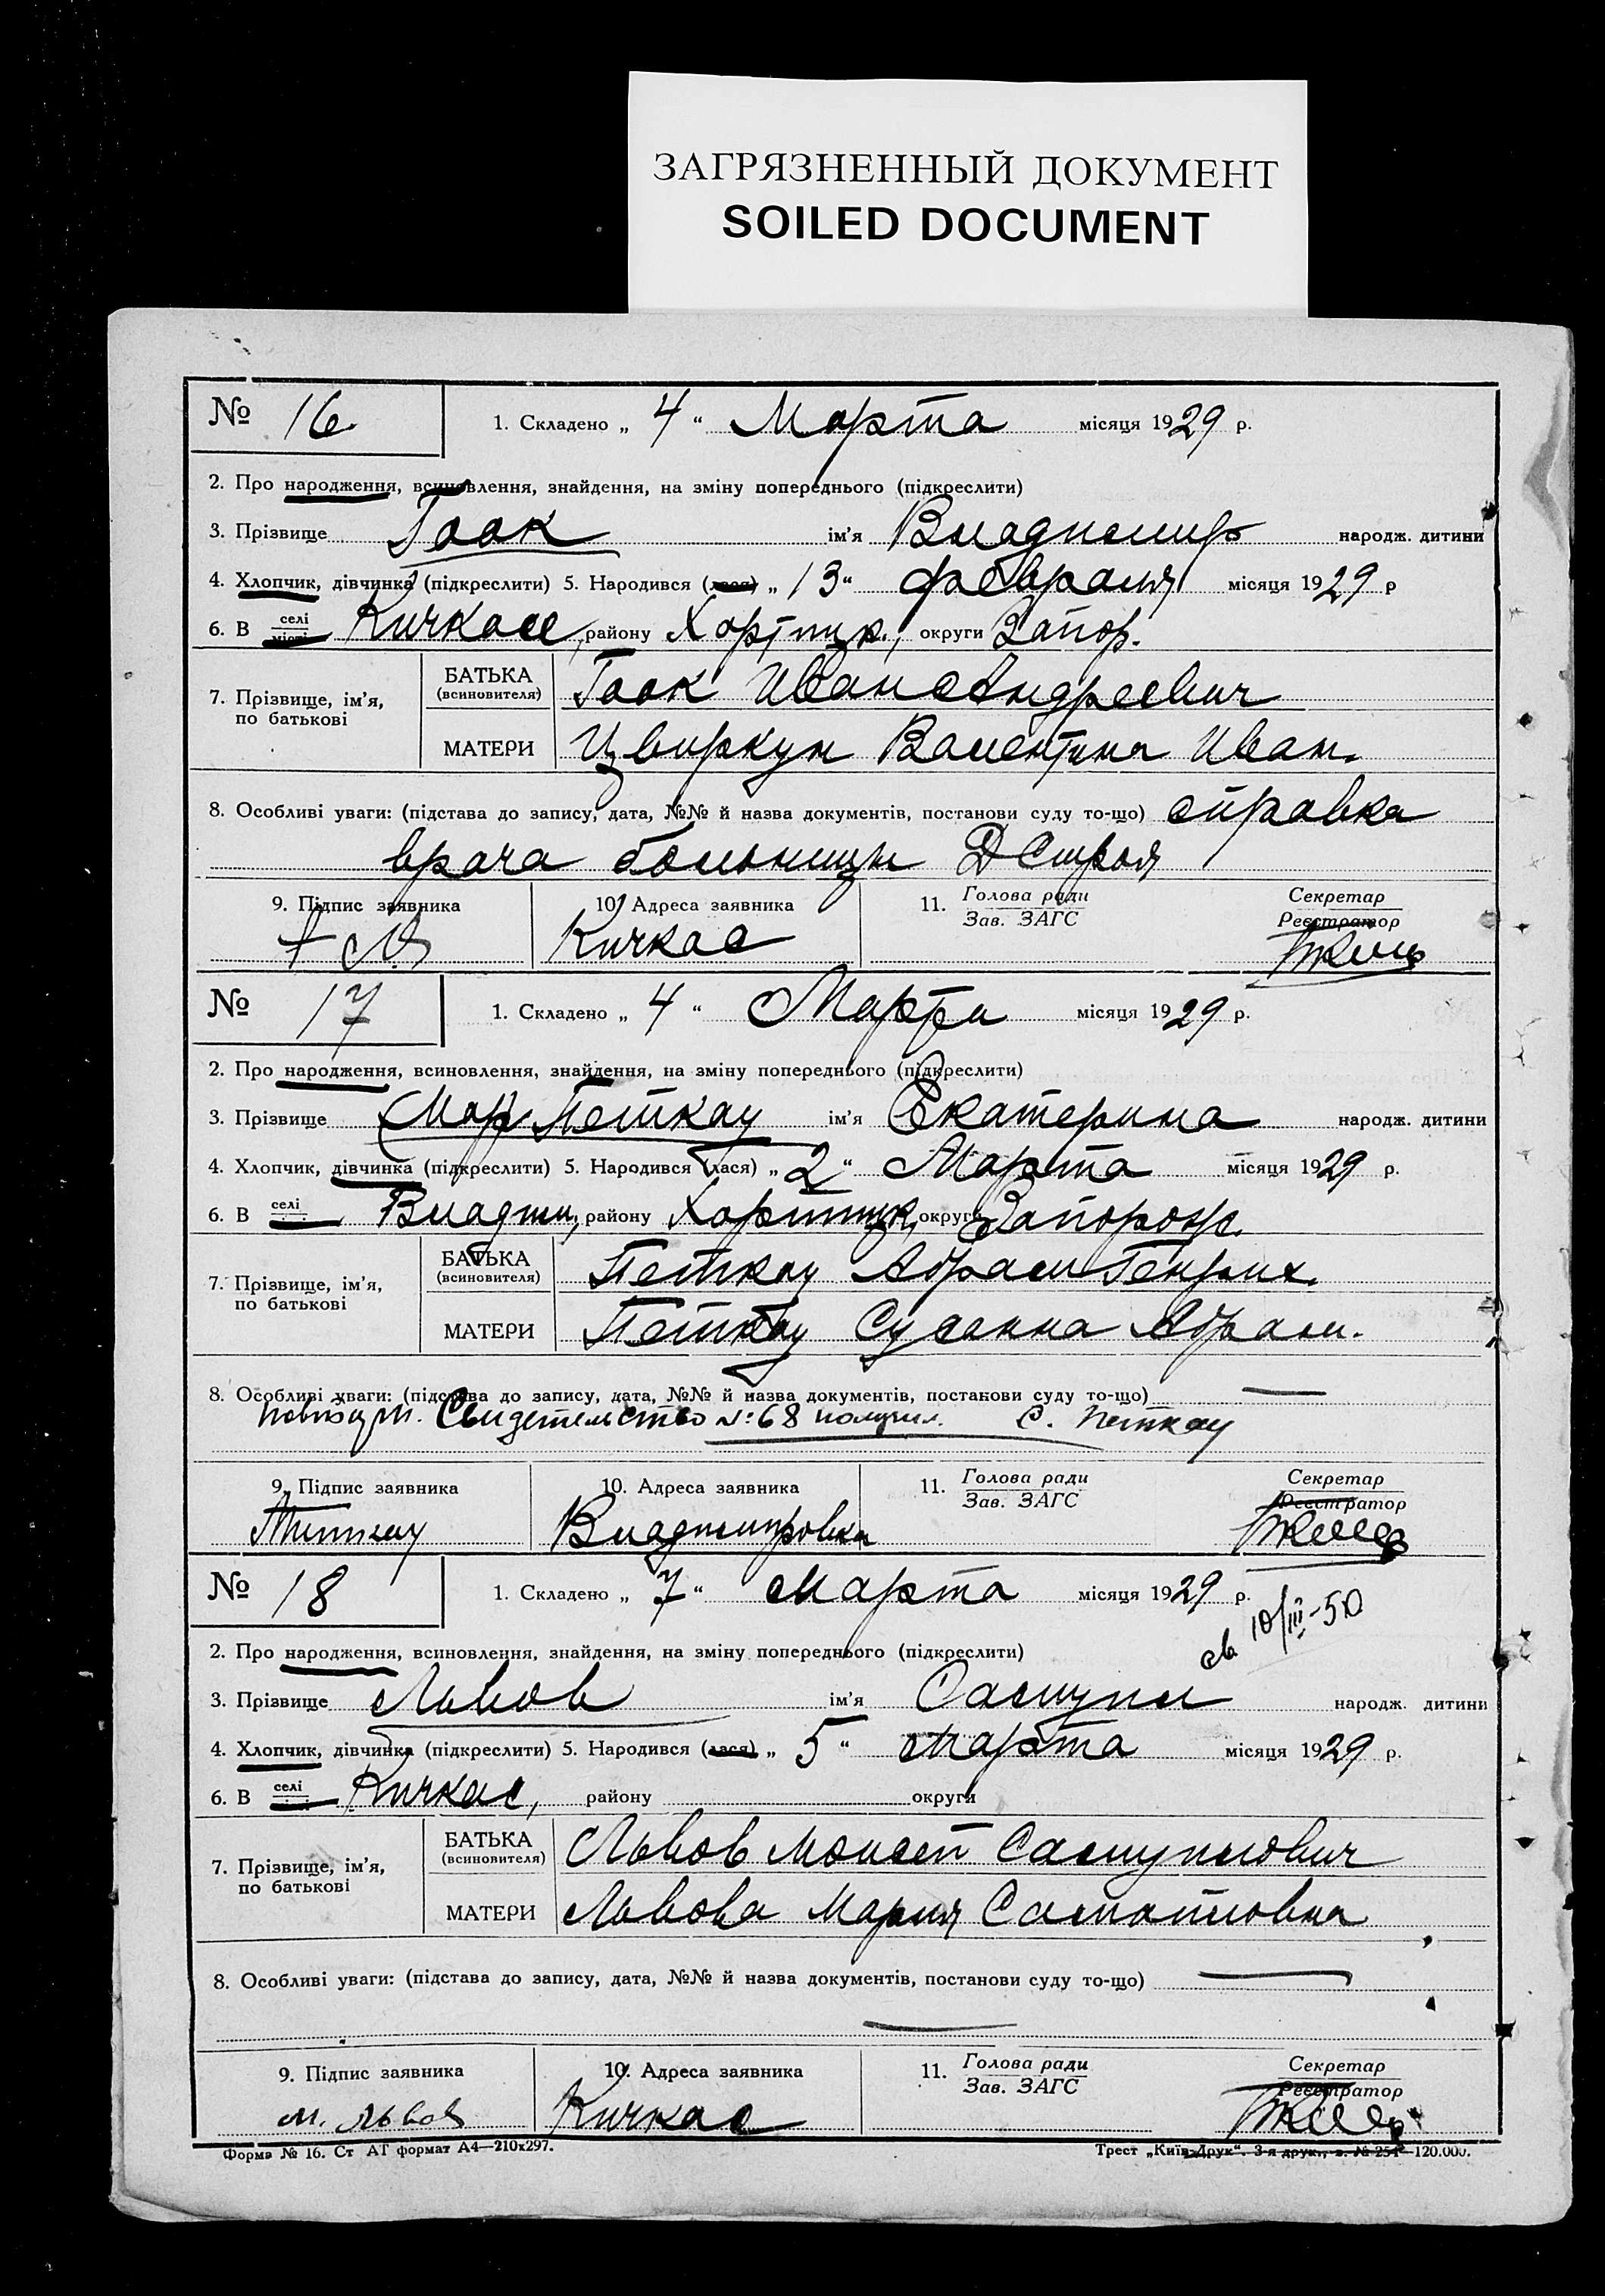 ЗАГРЯЗНЕННЫЙ ДОКУМЕНТ
SOILED DOCUMENT
№ 16. 1. Складено „ 4 “ Марта місяця 1929 р.
2. Про народження, всиновлення, знайдення, на зміну попереднього (підкреслити)
3. Прізвище Гоок ім'я Владимир народж. дитини
4. Хлопчик, дівчинка (підкреслити) 5. Народився (лася) „ 13 “ февраля місяця 1929 р
6. В селі місті Кичкасе, району Хортиц., округи Запор.
7. Прізвище, ім'я, по батькові
БАТЬКА (всиновителя) Гоок Иван Андреевич
МАТЕРИ Цвиркун Валентина Иван.
8. Особливі уваги: (підстава до запису, дата, №№ й назва документів, постанови суду то-що) справка
врача больницы ДСтроя
9. Підпис заявника 10. Адреса заявника 11. Голова ради Зав. ЗАГС Секретар Реєстратор
Кичкас
№ 17 1. Складено „ 4 “ Марта місяця 1929 р.
2. Про народження, всиновлення, знайдення, на зміну попереднього (підкреслити)
3. Прізвище Петкау ім'я Екатерина народж. дитини
4. Хлопчик, дівчинка (підкреслити) 5. Народився (лася) „ 2 “ Марта місяця 1929 р.
6. В селі Владим., району Хортицк., округи Запорож.
7. Прізвище, ім'я, по батькові
БАТЬКА (всиновителя) Петкау Абрам Генрих.
МАТЕРИ Петкау Сусанна Абрам.
8. Особливі уваги: (підстава до запису, дата, №№ й назва документів, постанови суду то-що)
Свидетельство №: 68 получил. С. Петкау
9. Підпис заявника 10. Адреса заявника 11. Голова ради Зав. ЗАГС Секретар Реєстратор
Петкау Владимировка
№ 18 1. Складено „ 7 “ Марта місяця 1929 р.
св 10/III-50
2. Про народження, всиновлення, знайдення, на зміну попереднього (підкреслити)
3. Прізвище Львов ім'я Самуил народж. дитини
4. Хлопчик, дівчинка (підкреслити) 5. Народився (лася) „ 5 “ Марта місяця 1929 р.
6. В селі Кичкас, району округи
7. Прізвище, ім'я, по батькові
БАТЬКА (всиновителя) Львов Моисей Самуилович
МАТЕРИ Львова Мария
8. Особливі уваги: (підстава до запису, дата, №№ й назва документів, постанови суду то-що)
9. Підпис заявника 10. Адреса заявника 11. Голова ради Зав. ЗАГС Секретар Реєстратор
М. Львов Кичкас
Форма № 16. Ст АТ формат А4—210x297. Трест „Київ-Друк“. 3-я друк., з. № 254—120.000.